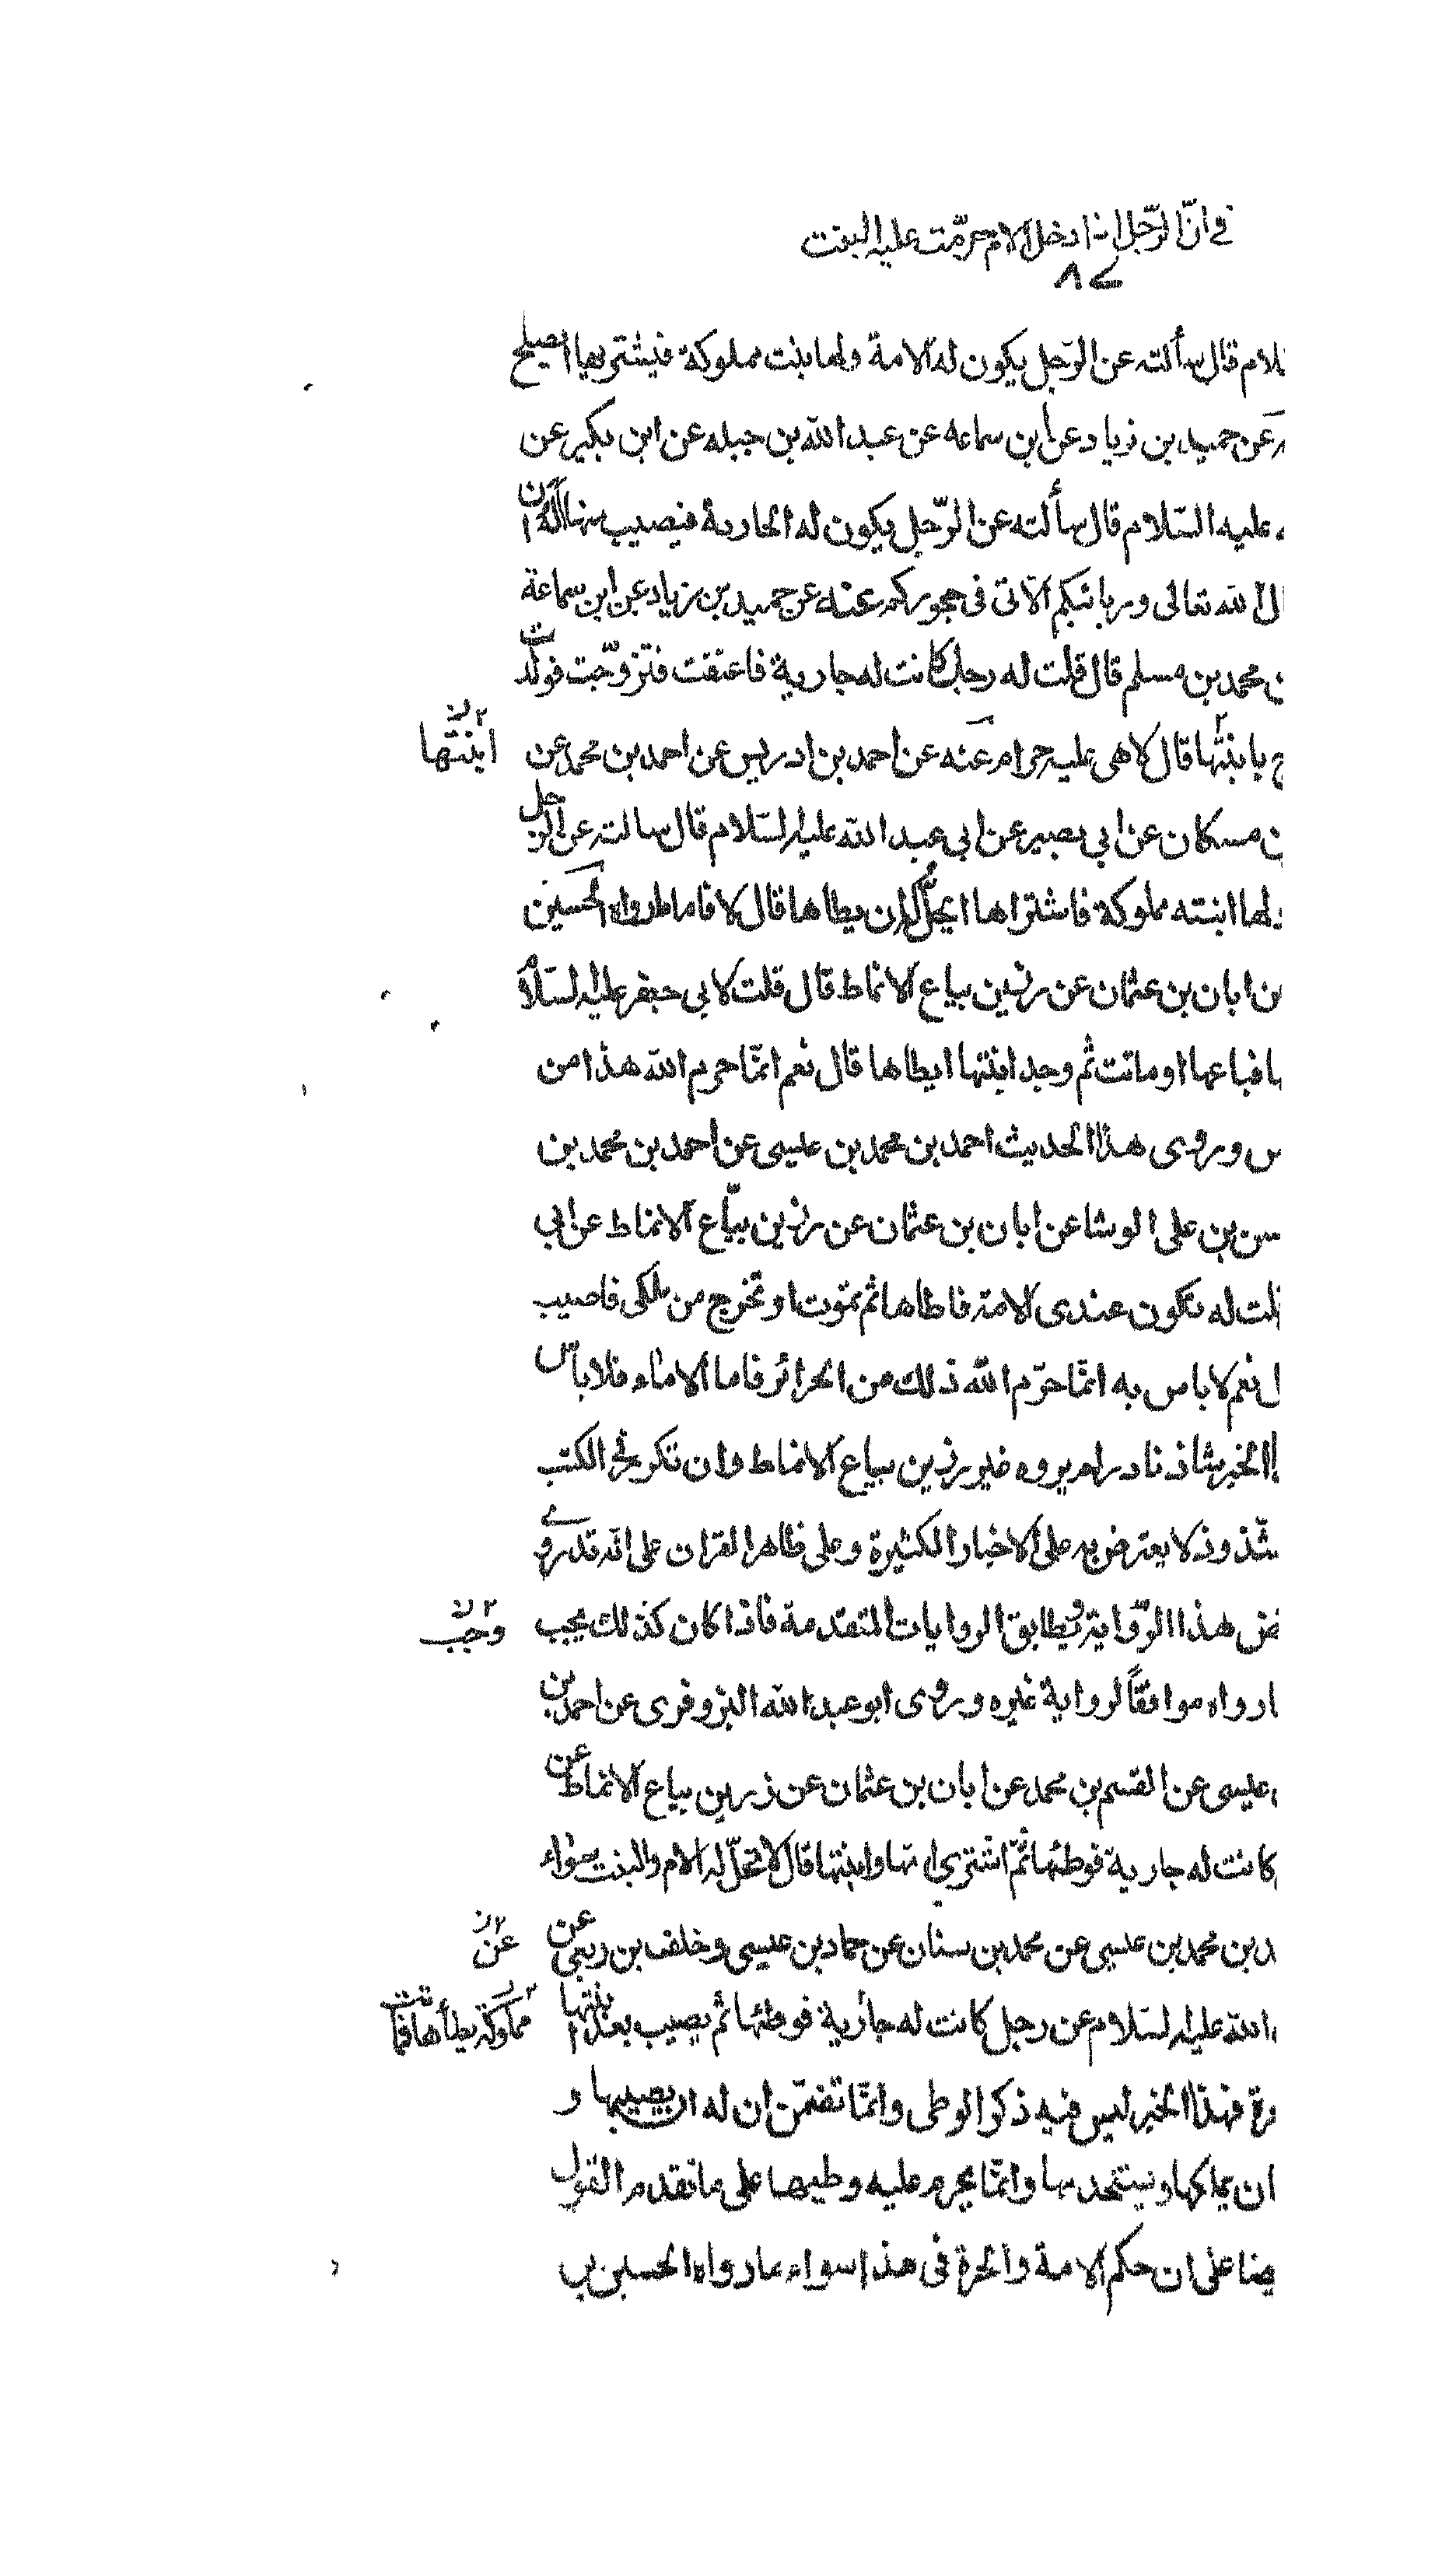 في ان الرّجل اذا دخل الام حرّمت عليه البنت
٨٧
لام قال سألته عن الرّجل يكون له الامة ولها بنت مملوكة فيشتريها ايصلح
عن حميد بن زياد عن ابن سماعه عن عبد الله بن جبله عن ابن بكير عن
عليه السّلام قال سألته عن الرّجل يكون له الجارية فيصيب منها اله ان
ال الله تعالى وربائبكم الاتى فى حجوركم عنه عن حميد بن زياد عن ابن سماعة
ن محمد بن مسلم قال قلت له رجل كانت له جارية فاعتقت فتزوّجت فولدت
ج بابنتها قال لا هى عليه حرام عنه عن احمد بن ادريس عن احمد بن محمد عن
ابنتها
ن مسكان عن ابي بصير عن ابي عبد الله عليه السّلام قال سالته عن الرجل
ولها ابنته مملوكة فاشتراها ايحلّ له ان يطاها قال لا فاما ما رواه الحسين
ن ابان بن عثمان عن رزين بياع الانماط قال قلت لابي جعفر عليه السّلام
ها فباعها او ماتت ثم وجد ابنتها ايطاها قال نعم انّما حرم الله هذا من
س وروى هذا الحديث احمد بن محمد بن عيسى عن احمد بن محمد بن
سن بن على الوشا عن ابان بن عثمان عن رزين بيّاع الانماط عن ابي
قلت له تكون عندى الامة فاطاها ثم تموت او تخرج من ملكى فاصيب
ل نعم لا باس به انّما حرّم الله ذلك من الحرائر فاما الاماء فلا باس
الخبر شاذ نادر لم يروه غير رزين بياع الانماط وان تكرر فى الكتب
شّذوذ لا يعترض به على الاخبار الكثيرة وعلى ظاهر القران على انّه قد روى
قض هذا الرّواية ويطابق الروايات المتقدمة فاذا كان كذلك يجب
وجب
ما رواه موافقاً لرواية غيره وروى ابو عبد الله البزوفرى عن احمد بن
عيسى عن القسم بن محمد عن ابان بن عثمان عن زرين بياع الانماط عن
كانت له جارية فوطئها ثمّ اشترى امها وابنتها قال لا تحلّ له الام والبنت سواء
د بن محمد بن عيسى عن محمد بن سنان عن حماد بن عيسى وخلف بن ربعى عن
عن
الله عليه السّلام عن رجل كانت له جارية فوطئها ثم يصيب بعد ابنتها
مملوكة يطأها فماتت
ورة فهذا الخبر ليس فيه ذكر الوطى وانّما تضمّن ان له ان يصيبها و
ان يملكها ويستخدمها وانّما يحرم عليه وطيها على ما تقدم القول
يضا على ان حكم الامة والحرة فى هذا سواء ما رواه الحسين بن